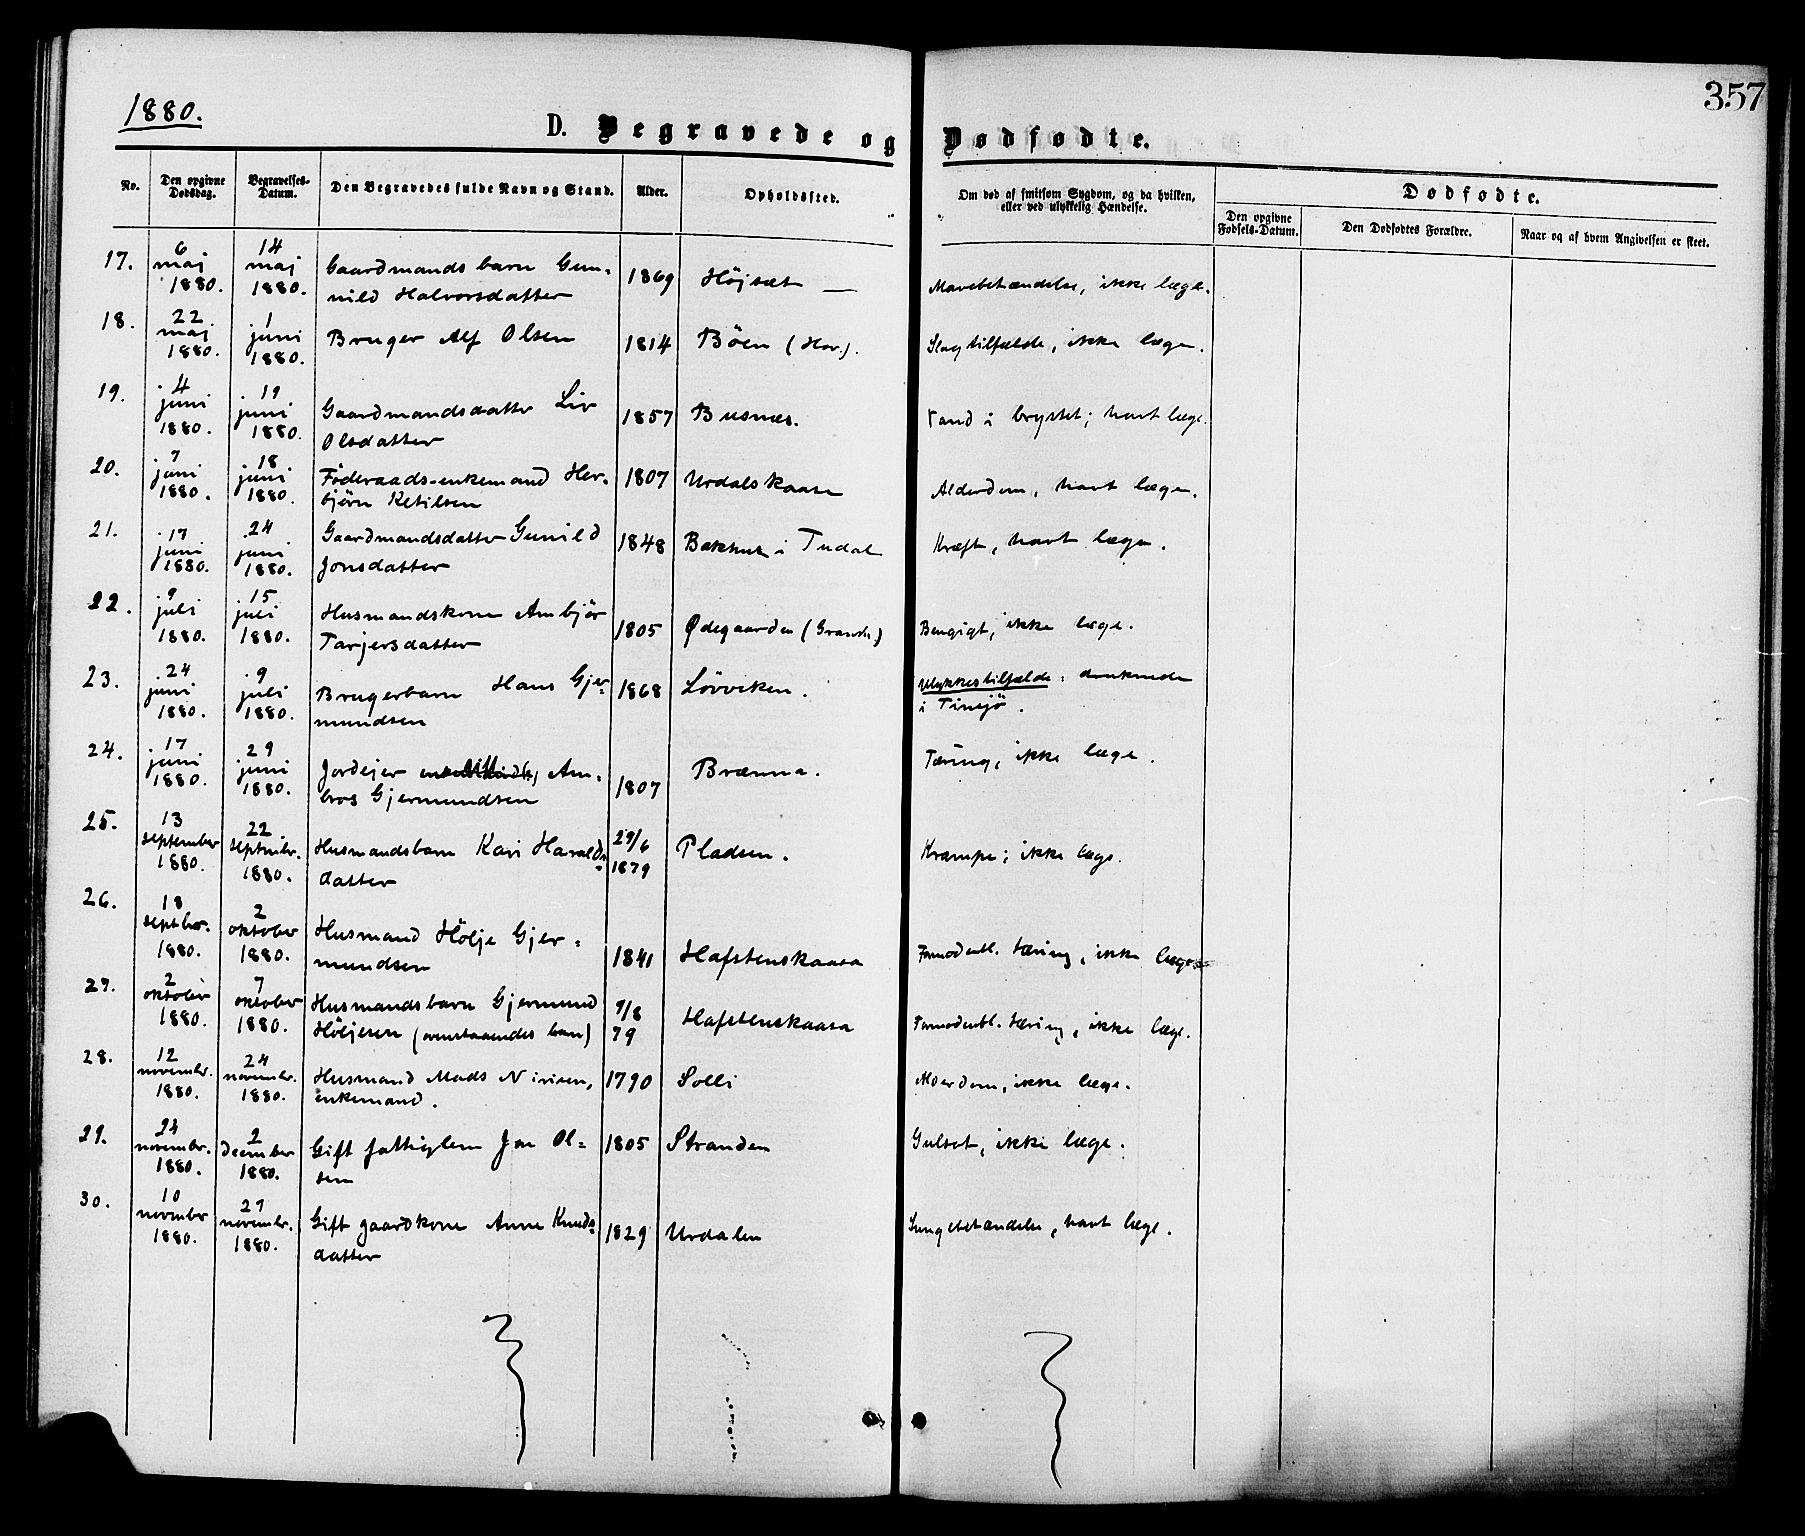 357
1880.
D. Begravede og Dødfødte.
No. Den opgivne Dødsdag. Begravelses-Datum. Den Begravedes fulde Navn og Stand. Alder. Opholdssted. Om død af smitsom Sygdom, og da hvilken, eller ved ulykkelig Hændelse. Dødfødte.
Den opgivne Fødsels-Datum. Den Dødfødtes Forældre. Naar og af hvem Angivelsen er skeet.
17. 6 maj 1880. 14 maj 1880. Gaardmands barn Gun-
nild Halvorsdatter 1869 Højsæt — Mavebetændelse, ikke læge.
18. 22 maj 1880. 1 juni 1880. Bruger Alf Olsen 1814 Böen (Hov.). Slagtilfælde, ikke læge.
19. 4 juni 1880. 19 juni 1880. Gaardmandsdatter Liv
Olsdatter 1857 Busnæs. Vand i brystet; havt læge.
20. 7 juni 1880. 18 juni 1880. Föderaads-enkemand Her-
björn Ketilsen 1807 Urdalskaasa Alderdom, havt læge.
21. 17 juni 1880. 24 juni 1880. Gaardmandsdatter Gunild
Jonsdatter 1848 Bakhus i Tudal Kræft, havt læge.
22. 9 juli 1880. 15 juli 1880. Husmandskone Ambjör
Tarjersdatter 1805 Ødegaarden Bengigt, ikke læge.
23. 24 juni 1880. 9 juli 1880. Brugerbarn Hans Gjer-
mundsen 1868 Lövviken. Ulykkestilfælde: druknede
i Tinsjö.
24. 17 juni 1880. 29 juni 1880. Jordejer Am-
bros Gjermundsen 1807 Brænna. Tæring, ikke læge.
25. 13 september 1880. 22 septembr. 1880. Husmandsbarn Kari Haralds-
datter 29/6 1879 Pladsen. Krampe; ikke læge.
26. 18 septbr. 1880. 2 oktober 1880. Husmand Hölje Gjer-
mundsen 1841 Hafstenskaasa Formodentl. tæring, ikke læge.
27. 2 oktober 1880. 7 oktober 1880. Husmandsbarn Gjermund
Höljesen (ovenstaaendes barn) 9/8 79 Hafstenskaasa Formodentl. tæring, ikke læge.
28. 12 novembr. 1880. 24 novembr. 1880. Husmand Mads Nirisen,
enkemand. 1790 Solli Alderdom, ikke læge.
29. 24 novembr. 1880. 2 december 1880. Gift fattiglem Jon Ol-
sen 1805 Stranden Gulsot, ikke læge.
30. 10 novembr 1880. 27 novembr. 1880. Gift gaardkone Anne Knuds-
datter 1829 Urdalen Lungebetændelse, havt læge.